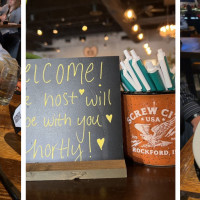 elcome!
e host will
be with you
hortly!
SCREW CI
USA
ROCKFORD, I